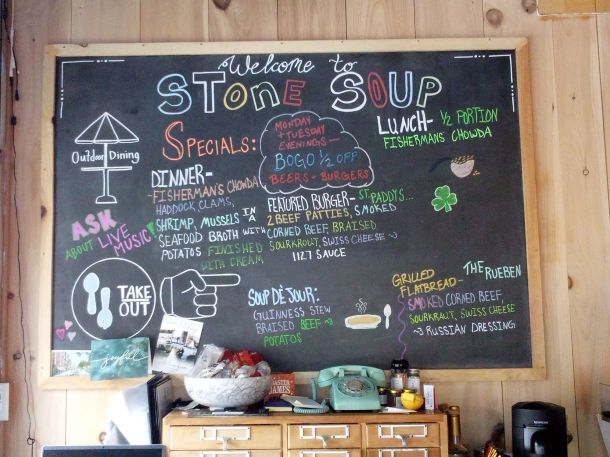 Welcome to
STONE SOUP
SPECIALS:
MONDAY
+ TUESDAY
EVENINGS—
BOGO ½ OFF
BEERS + BURGERS
LUNCH- ½ PORTION
FISHERMANS' CHOWDA
Outdoor Dining
DINNER-
-FISHERMAN'S CHOWDA
HADDOCK, CLAMS,
SHRIMP, MUSSELS IN A
SEAFOOD BROTH WITH
POTATOS FINISHED
WITH CREAM
FEATURED BURGER- ST PADDYS...
2 BEEF PATTIES, SMOKED
CORNED BEEF, BRAISED
SOURKRAUT, SWISS CHEESE
1127 SAUCE
ASK
ABOUT LIVE
MUSIC!
TAKE
OUT
SOUP DÈJOUR:
GUINNESS STEW
BRAISED BEEF
POTATOS
GRILLED
FLATBREAD- THE RUEBEN
SMOKED CORNED BEEF,
SOURKRAUT, SWISS CHEESE
RUSSIAN DRESSING
joyful